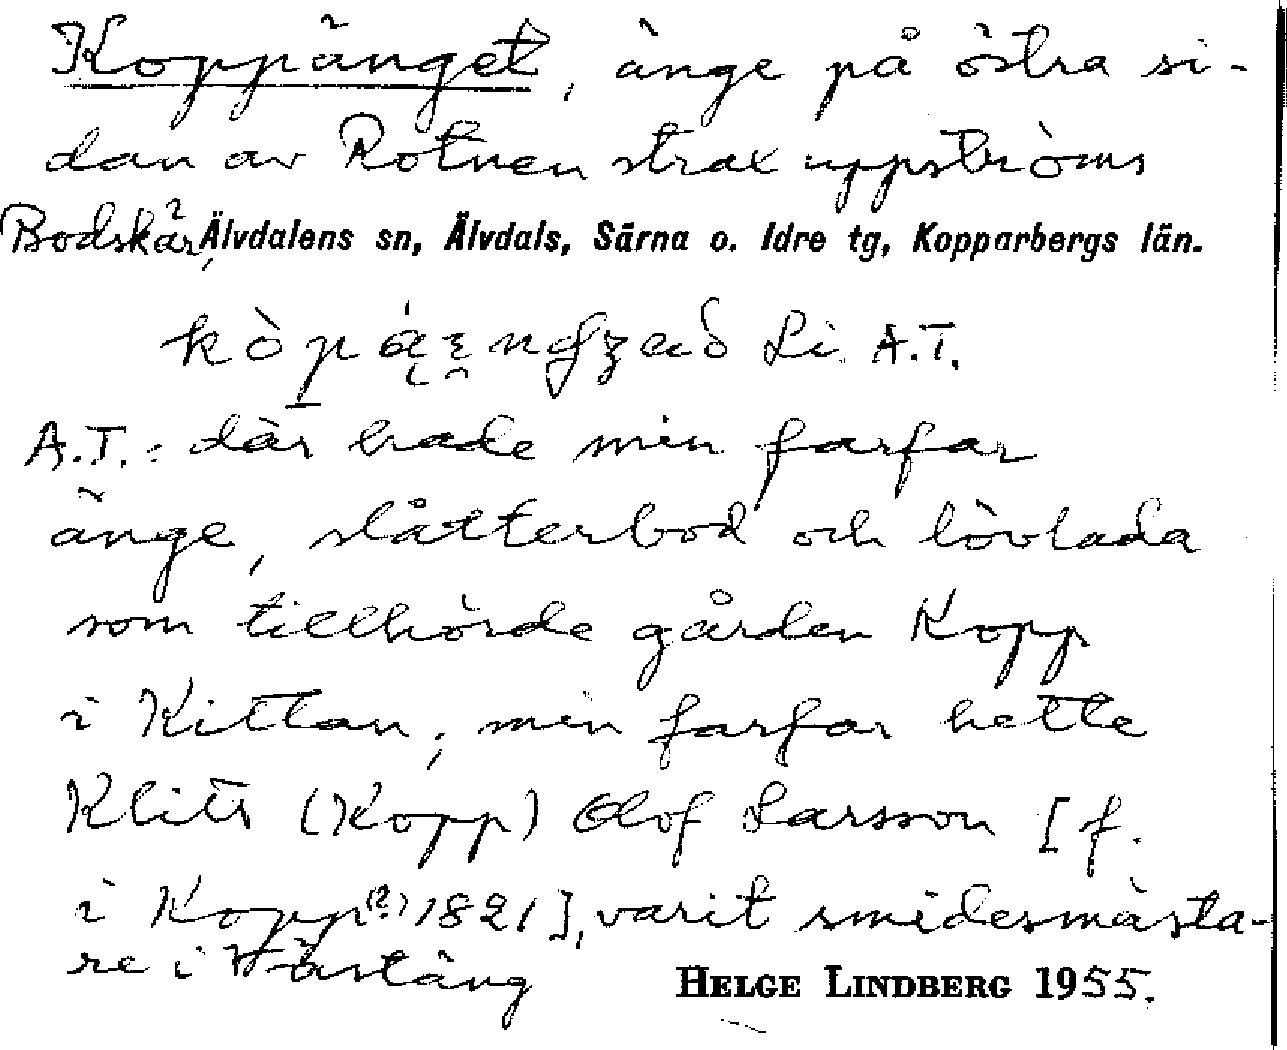 Koppänget, änge på östra si-
dan av Rotnen strax uppströms
Bodskär, Älvdalens sn, Älvdals, Särna o. Idre tg, Kopparbergs län.
Li. A.T.
A.T.: där hade min farfar
änge, slåtterbod och lövlada
som tillhörde gården Kopp
i Kittan, min farfar hette
Klitts (Kopp) Olof Larsson [f.
i Kopp(?) 1821], varit smidesmästa-
re i Västäng
HELGE LINDBERG 1955.